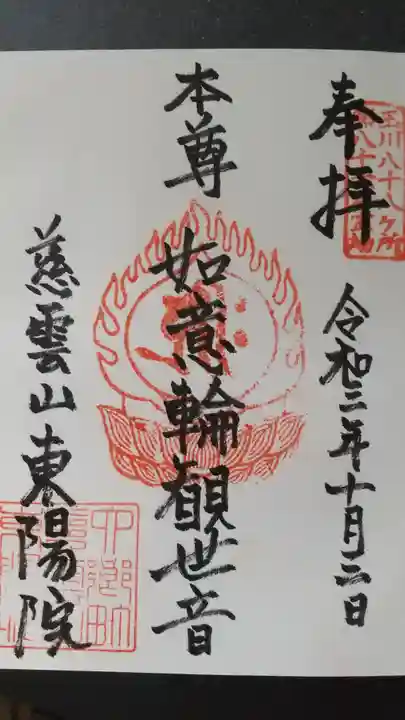 奉拝
玉川八十八ヶ所
令和三年十月二日
本尊
如意輪観世音
慈雲山東陽院